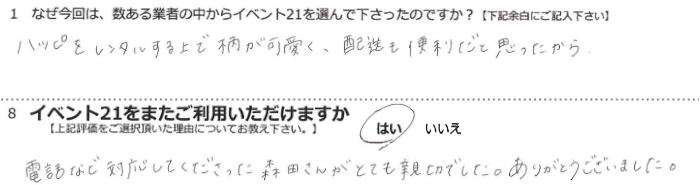 1 なぜ今回は、数ある業者の中からイベント21を選んで下さったのですか？【下記余白にご記入下さい】
ハッピをレンタルする上で柄が可愛く、配送も便利だと思ったから.
8 イベント21をまたご利用いただけますか
【上記評価をご選択頂いた理由についてお教え下さい。】 はい いいえ
電話など対応してくださった森田さんがとても親切でした。ありがとうございました。